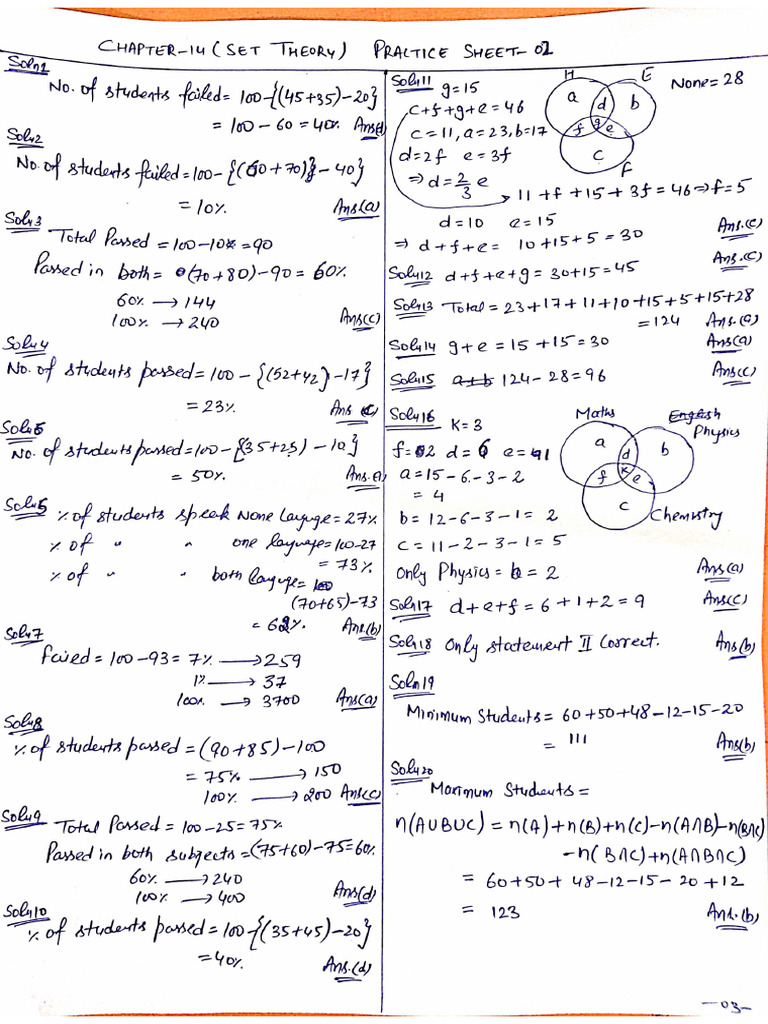 CHAPTER-14 (SET THEORY) PRACTICE SHEET-02
Soln1
No. of students failed = 100-{(45+35)-20}
= 100-60 = 40% Ans(d)
Soln2
No. of students failed = 100-{(60+70)}-40}
= 10% Ans(a)
Soln3
Total Passed = 100-10% = 90
Passed in both = (70+80)-90 = 60%
60% → 144
100% → 240 Ans(c)
Soln4
No. of students passed = 100-{(52+42)-17}
= 23% Ans (c)
Soln5
No. of students passed = 100-{35+25)-10}
= 50% Ans.
Soln5 % of students speak None layuge = 27%
% of " " one layuage = 100-27
= 73%
% of " " both layuge =
(70+65)-73
= 62% Ans(b)
Soln7
Faied = 100-93 = 7% → 259
1% → 37
100% → 3700 Ans(a)
Soln8
% of students passed = (90+85)-100
= 75% → 150
100% → 200 Ans(c)
Soln9
Total Passed = 100-25 = 75%
Passed in both subjects = (75+60)-75 = 60%
60% → 240
100% → 400 Ans(d)
Soln10
% of students passed = 100-{(35+45)-20}
= 40% Ans.(d)
Soln11 g=15
H E None = 28
a d b
f g e
c
F
c+f+g+e = 46
c=11, a=23, b=17
d=2f e=3f
⇒ d = 2/3 e
11+f+15+3f = 46 ⇒ f=5
d=10 e=15
Ans.(c)
⇒ d+f+e = 10+15+5 = 30
Ans.(c)
Soln12 d+f+e+g = 30+15 = 45
Soln13 Total = 23+17+11+10+15+5+15+28
= 124 Ans.(a)
Soln14 g+e = 15+15 = 30 Ans(a)
Soln15 a+b 124-28 = 96 Ans(c)
Soln16 K=3
Maths English
Physics
a d b
f k e
c
Chemistry
f=2 d=6 e=1
a = 15-6-3-2
= 4
b = 12-6-3-1 = 2
c = 11-2-3-1 = 5
Only Physics = b = 2 Ans(a)
Soln17 d+e+f = 6+1+2 = 9 Ans(c)
Soln18 Only statement II Correct. Ans(b)
Soln19
Minimum Students = 60+50+48-12-15-20
= 111 Ans(b)
Soln20
Maximum Students =
n(AUBUC) = n(A)+n(B)+n(C)-n(A∩B)-n(B∩C)
-n(B∩C)+n(A∩B∩C)
= 60+50+48-12-15-20+12
= 123 Ans.(b)
-03-